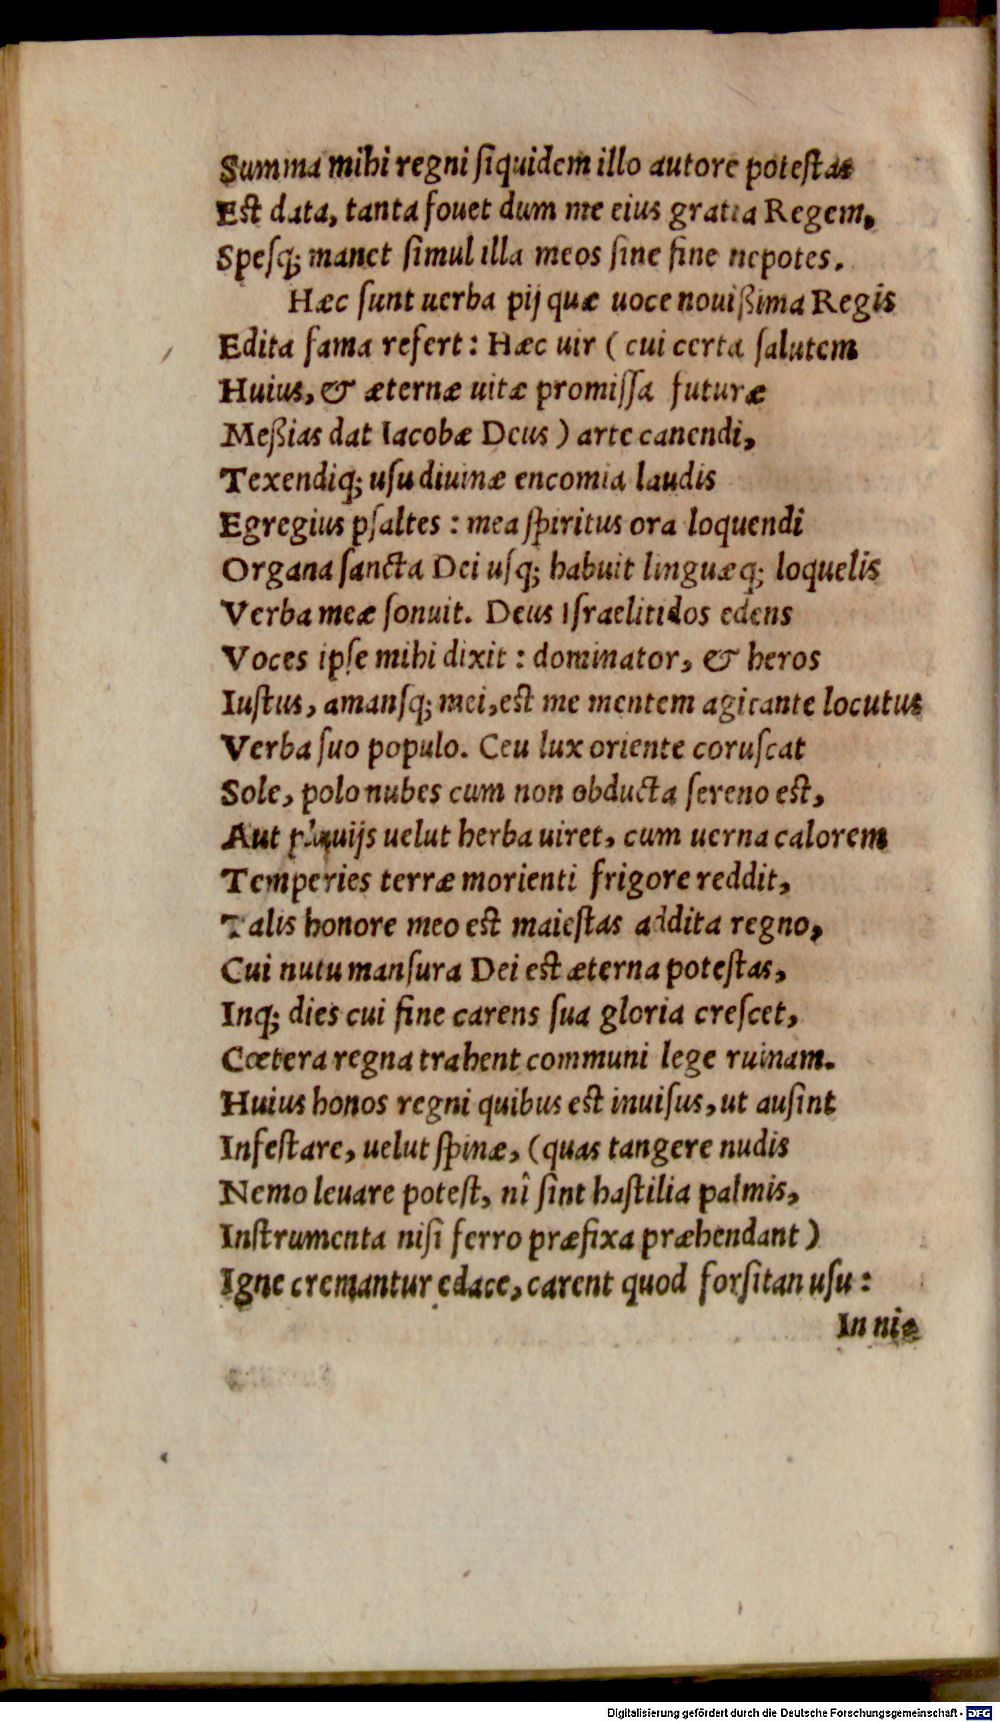 Summa mihi regni ſiquidem illo autore poteſtas
Eſt data, tanta fouet dum me eius gratia Regem,
Speſq; manet ſimul illa meos ſine fine nepotes.
Hæc ſunt uerba pij quæ uoce nouißima Regis
Edita fama refert: Hæc uir (cui certa ſalutem
Huius, & æternæ uitæ promiſſa futuræ
Meßias dat Iacobæ Deus) arte canendi,
Texendiq; uſu diuinæ encomia laudis
Egregius pſaltes: mea ſpiritus ora loquendi
Organa ſancta Dei uſq; habuit linguæq; loquelis
Verba meæ ſonuit. Deus Iſraelitidos edens
Voces ipſe mihi dixit: dominator, & heros
Iuſtus, amanſq; mei, eſt me mentem agitante locutus
Verba ſuo populo. Ceu lux oriente coruſcat
Sole, polo nubes cum non obducta ſereno eſt,
Aut pluuijs uelut herba uiret, cum uerna calorem
Temperies terræ morienti frigore reddit,
Talis honore meo eſt maieſtas addita regno,
Cui nutu manſura Dei eſt æterna poteſtas,
Inq; dies cui fine carens ſua gloria creſcet,
Cœtera regna trahent communi lege ruinam.
Huius honos regni quibus eſt inuiſus, ut auſint
Infeſtare, uelut ſpinæ, (quas tangere nudis
Nemo leuare poteſt, nî ſint haſtilia palmis,
Inſtrumenta niſi ferro præfixa præhendant)
Igne cremantur edace, carent quod forſitan uſu:
In ni⸗
Digitalisierung gefördert durch die Deutsche Forschungsgemeinschaft - DFG